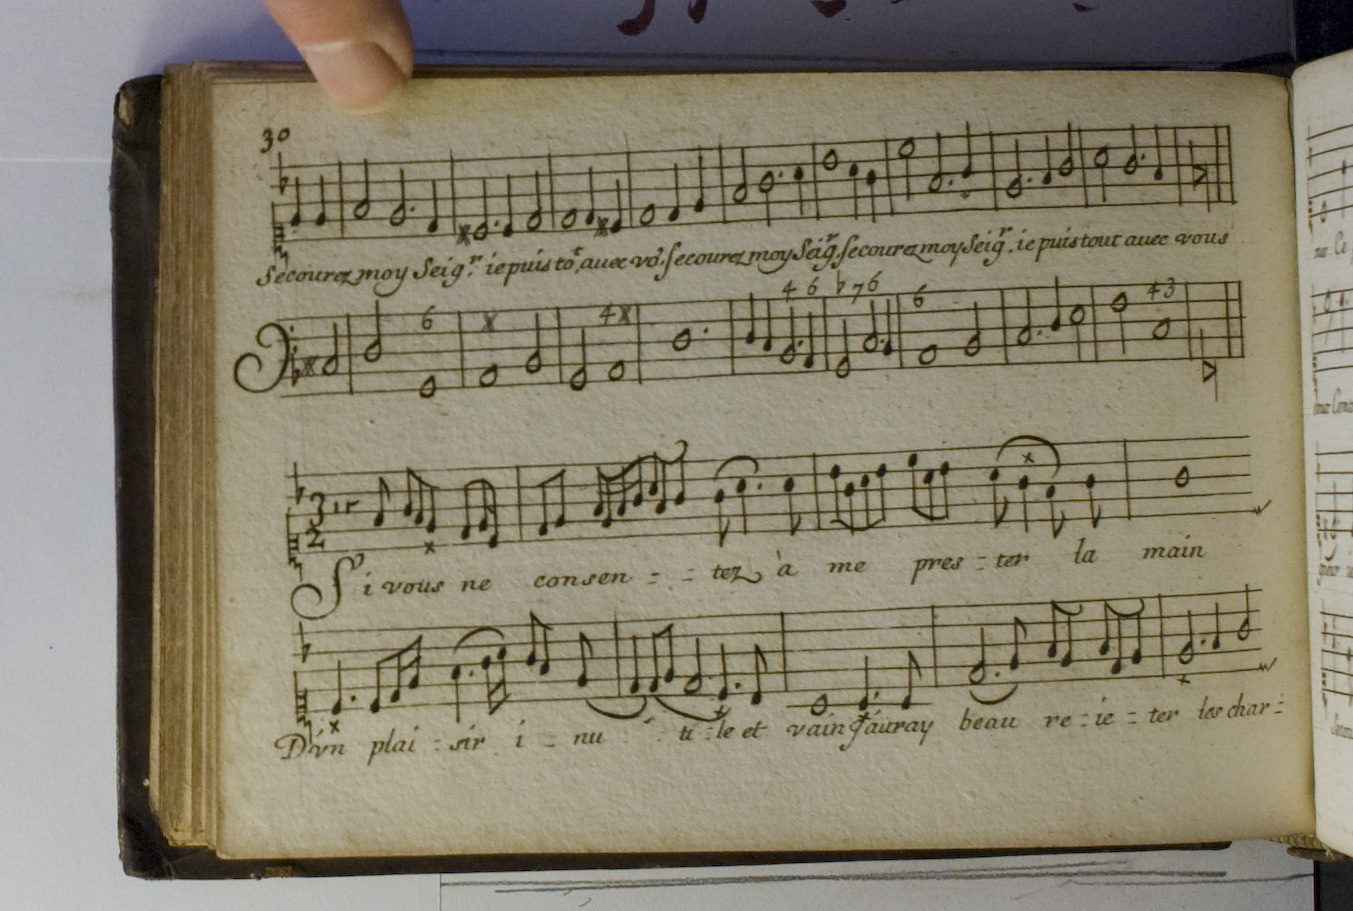 30
Secourez moy Seigr. ie puis tot. auec vos. secourez moy Seigr. secourez moy Seigr. ie puis tout auec vous
4 6 ♭ 7 6
6 4 6 4 3
3 2
Si vous ne consen - - tez à me pres - ter la main
D'vn plai - sir i - nu - ti - le et vain J'auray beau re - ie - ter les char -